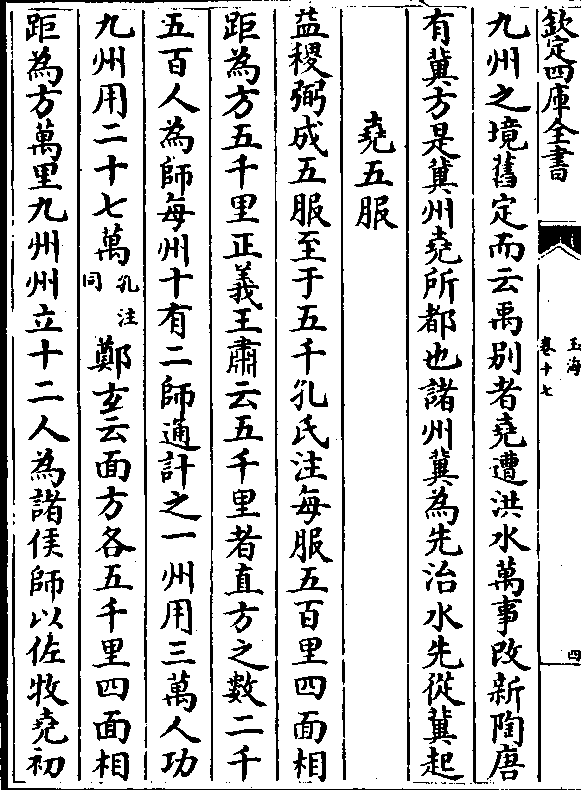 欽定四庫全書
玉海
卷十七
四
九州之境舊定而云禹別者堯遭洪水萬事改新陶唐
有冀方是冀州堯所都也諸州冀為先治水先從冀起
堯五服
益稷弼成五服至于五千孔氏注每服五百里四面相
距為方五千里正義王肅云五千里者直方之數二千
五百人為師每州十有二師通計之一州用三萬人功
九州用二十七萬孔注同鄭玄云面方各五千里四面相
距為方萬里九州州立十二人為諸侯師以佐牧堯初